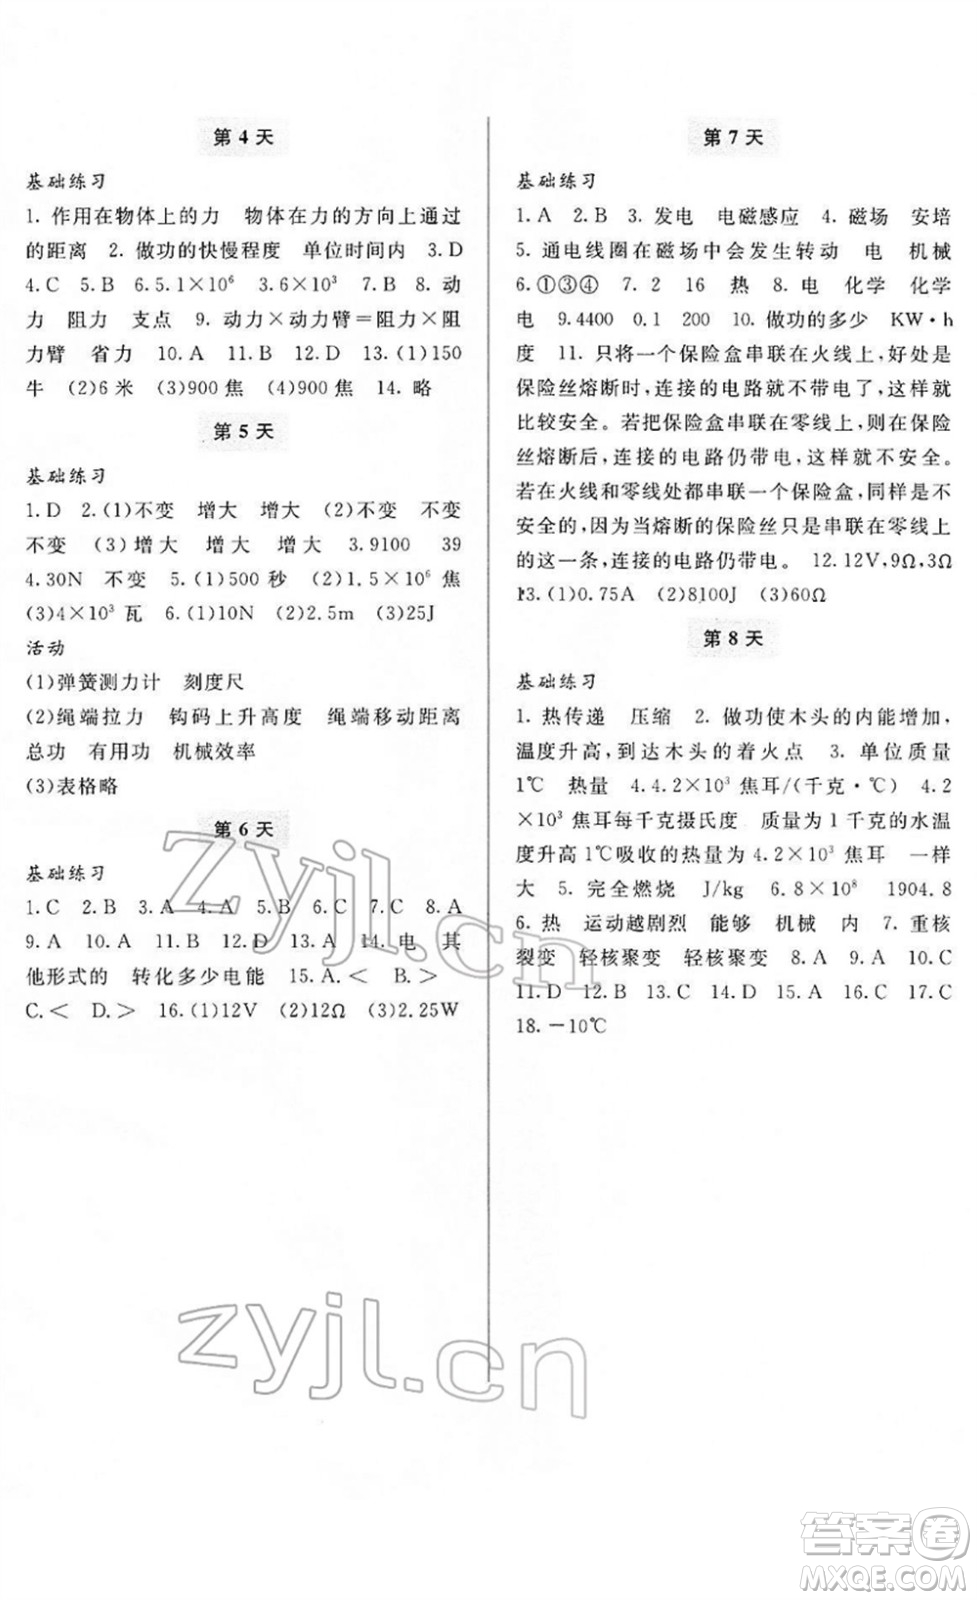 第 4 天
基础练习
1. 作用在物体上的力　物体在力的方向上通过
的距离　2. 做功的快慢程度　单位时间内　3. D
4.C　5.B　6.5.1×10⁶　3.6×10³　7.B　8. 动
力　阻力　支点　9. 动力×动力臂＝阻力×阻
力臂　省力　10.A　11.B　12.D　13.(1)150
牛　(2)6 米　(3)900 焦　(4)900 焦　14. 略
第 5 天
基础练习
1.D　2.(1)不变　增大　增大　(2)不变　不变
不变　(3)增大　增大　增大　3.9100　39
4.30N　不变　5.(1)500 秒　(2)1.5×10⁶ 焦
(3)4×10³ 瓦　6.(1)10N　(2)2.5m　(3)25J
活动
(1)弹簧测力计　刻度尺
(2)绳端拉力　钩码上升高度　绳端移动距离
总功　有用功　机械效率
(3)表格略
第 6 天
基础练习
1.C　2.B　3.A　4.A　5.B　6.C　7.C　8.A
9.A　10.A　11.B　12.D　13.A　14. 电　其
他形式的　转化多少电能　15.A.＜　B.＞
C.＜　D.＞　16.(1)12V　(2)12Ω　(3)2.25W
第 7 天
基础练习
1.A　2.B　3. 发电　电磁感应　4. 磁场　安培
5. 通电线圈在磁场中会发生转动　电　机械
6.①③④　7.2　16　热　8. 电　化学　化学
电　9.4400　0.1　200　10. 做功的多少　KW·h
度　11. 只将一个保险盒串联在火线上,好处是
保险丝熔断时,连接的电路不带电了,这样就
比较安全。若把保险盒串联在零线上,则在保险
丝熔断后,连接的电路仍带电,这样就不安全。
若在火线和零线处都串联一个保险盒,同样是不
安全的,因为当熔断的保险丝只是串联在零线上
的这一条,连接的电路仍带电。　12.12V,9Ω,3Ω
13.(1)0.75A　(2)8100J　(3)60Ω
第 8 天
基础练习
1. 热传递　压缩　2. 做功使木头的内能增加,
温度升高,到达木头的着火点　3. 单位质量
1℃　热量　4.4.2×10³ 焦耳/(千克·℃)　4.2
×10³ 焦耳每千克摄氏度　质量为 1 千克的水温
度升高 1℃吸收的热量为 4.2×10³ 焦耳　一样
大　5. 完全燃烧　J/kg　6.8×10⁸　1904.8
6. 热　运动越剧烈　能够　机械　内　7. 重核
裂变　轻核聚变　轻核聚变　8.A　9.A　10.A
11.D　12.B　13.C　14.D　15.A　16.C　17.C
18.－10℃
zyjl.cn
zyjl.cn
答案圈
MXQE.COM